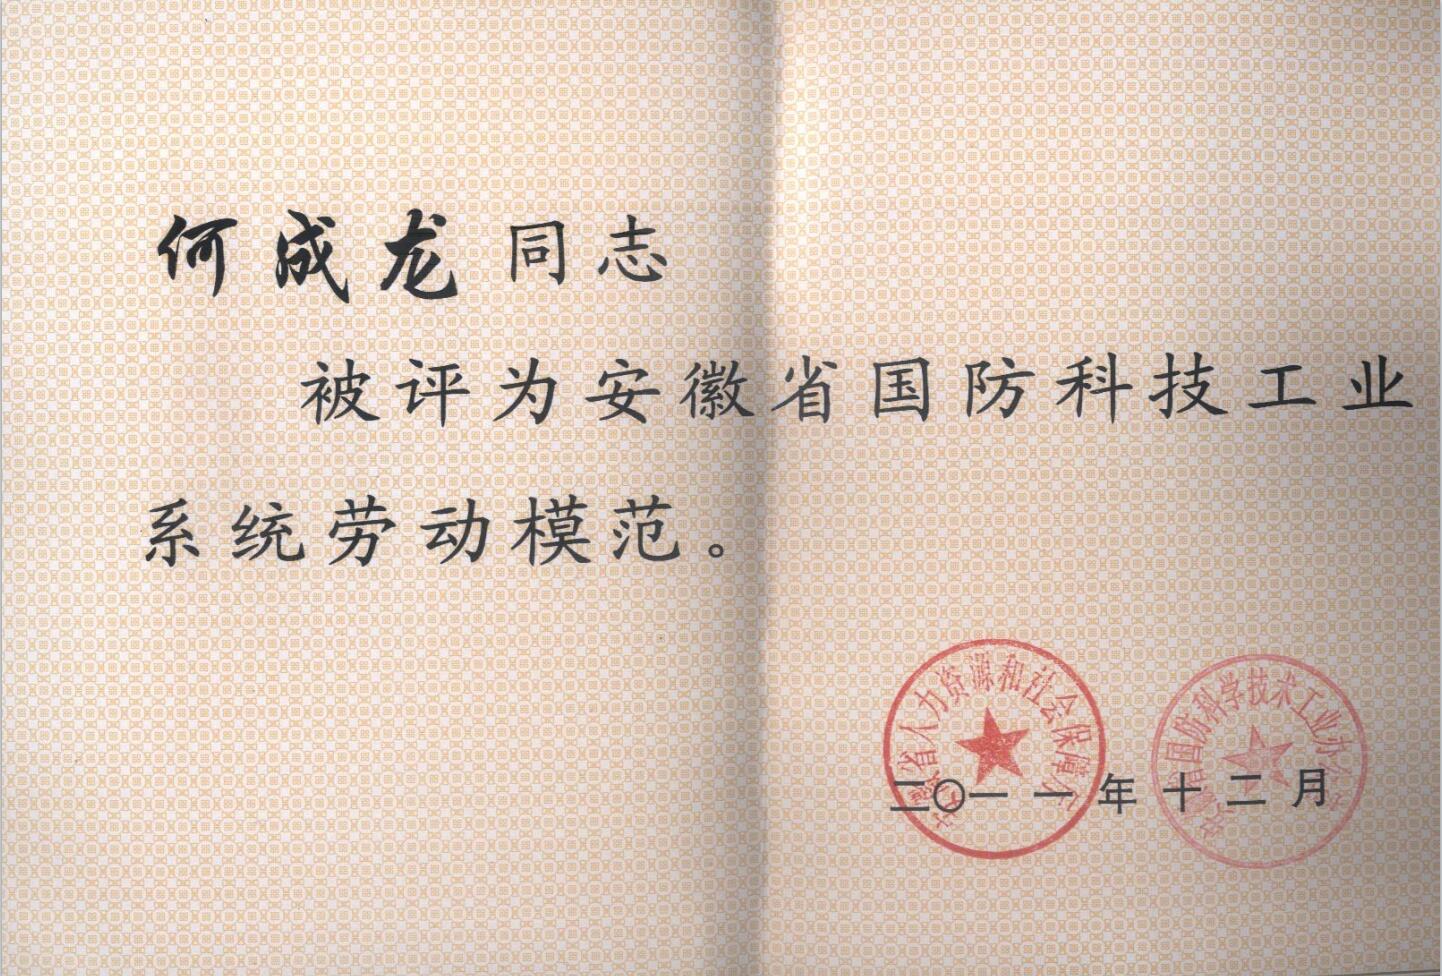 何成龙同志
被评为安徽省国防科技工业
系统劳动模范。
安徽省人力资源和社会保障厅
安徽省国防科学技术工业办公室
二〇一一年十二月